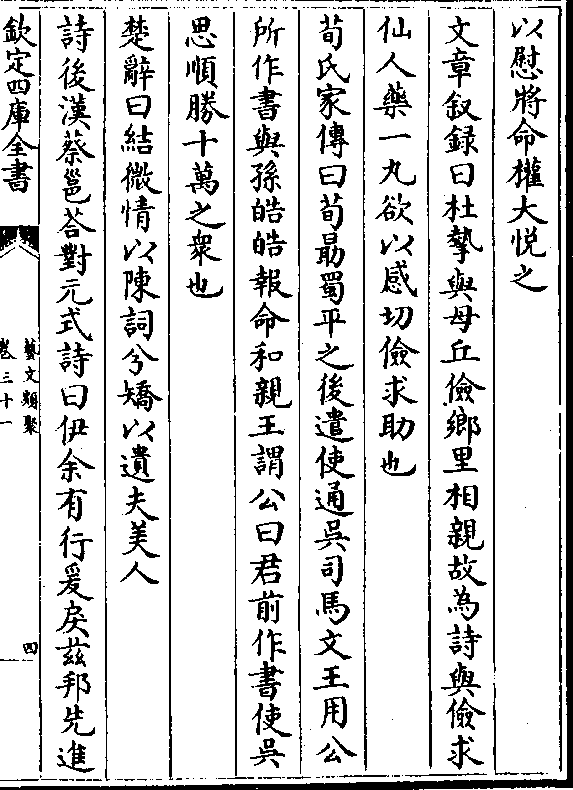 以慰將命權大悦之
文章叙録曰杜摯與毋丘儉鄉里相親故為詩與儉求
仙人藥一丸欲以感切儉求助也
荀氏家傳曰荀勗蜀平之後遣使通吳司馬文王用公
所作書與孫皓皓報命和親王謂公曰君前作書使吳
思順勝十萬之衆也
楚辭曰結微情以陳詞兮矯以遺夫美人
詩後漢蔡邕荅對元式詩曰伊余有行爰戾茲邦先進
欽定四庫全書
藝文類聚
卷三十一
四